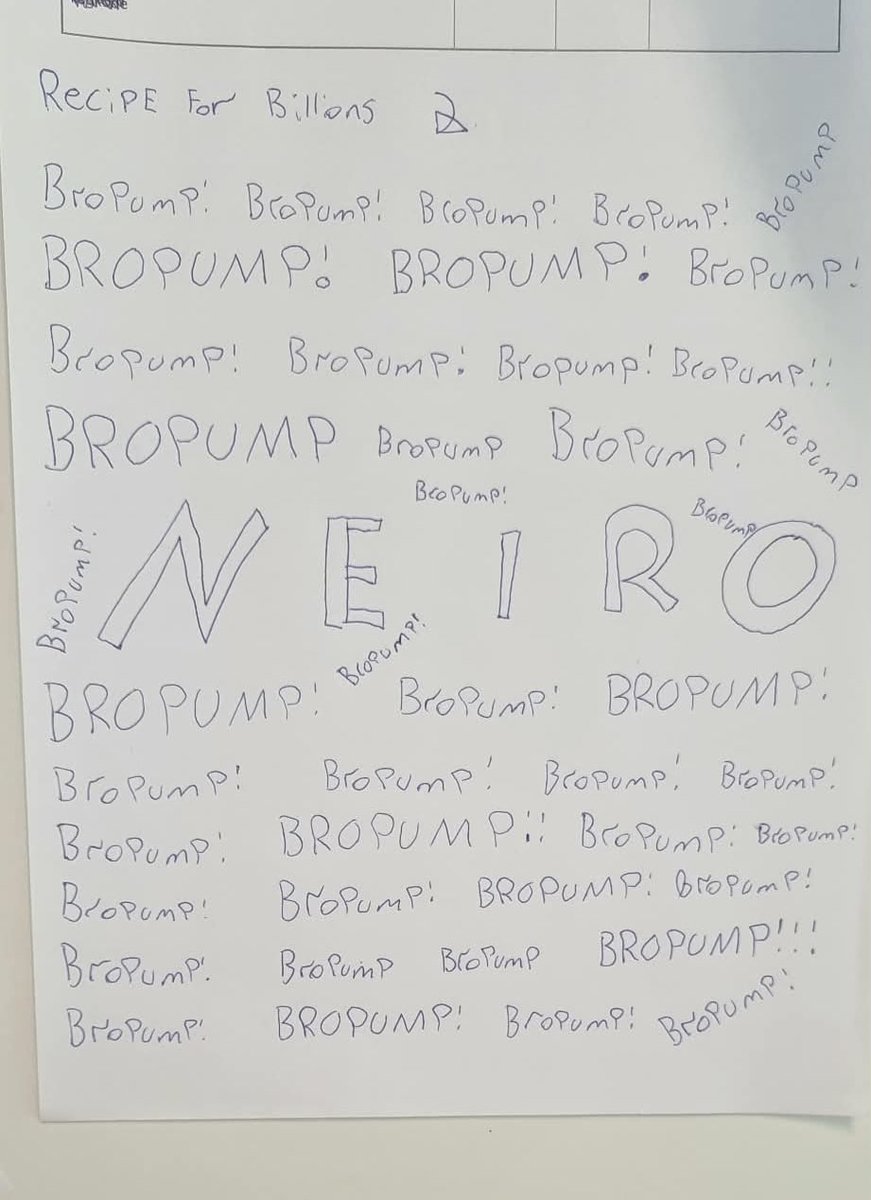 RECiPE For Billions 2
BroPump! BroPump! BroPump! BroPump! BroPump
BROPUMP! BROPUMP! BroPump!
BroPump! BroPump! BroPump! BroPump!!
BROPUMP BroPump BroPump! BroPump
BroPump! BroPump
BroPump! NEIRO
BroPump!
BROPUMP! BroPump! BROPUMP!
BroPump! BroPump! BroPump! BroPump!
BroPump! BROPUMP!! BroPump! BroPump!
BroPump! BroPump! BROPUMP! BroPump!
BroPump! BroPump BroPump BROPUMP!!!
BroPump! BROPUMP! BroPump! BroPump!